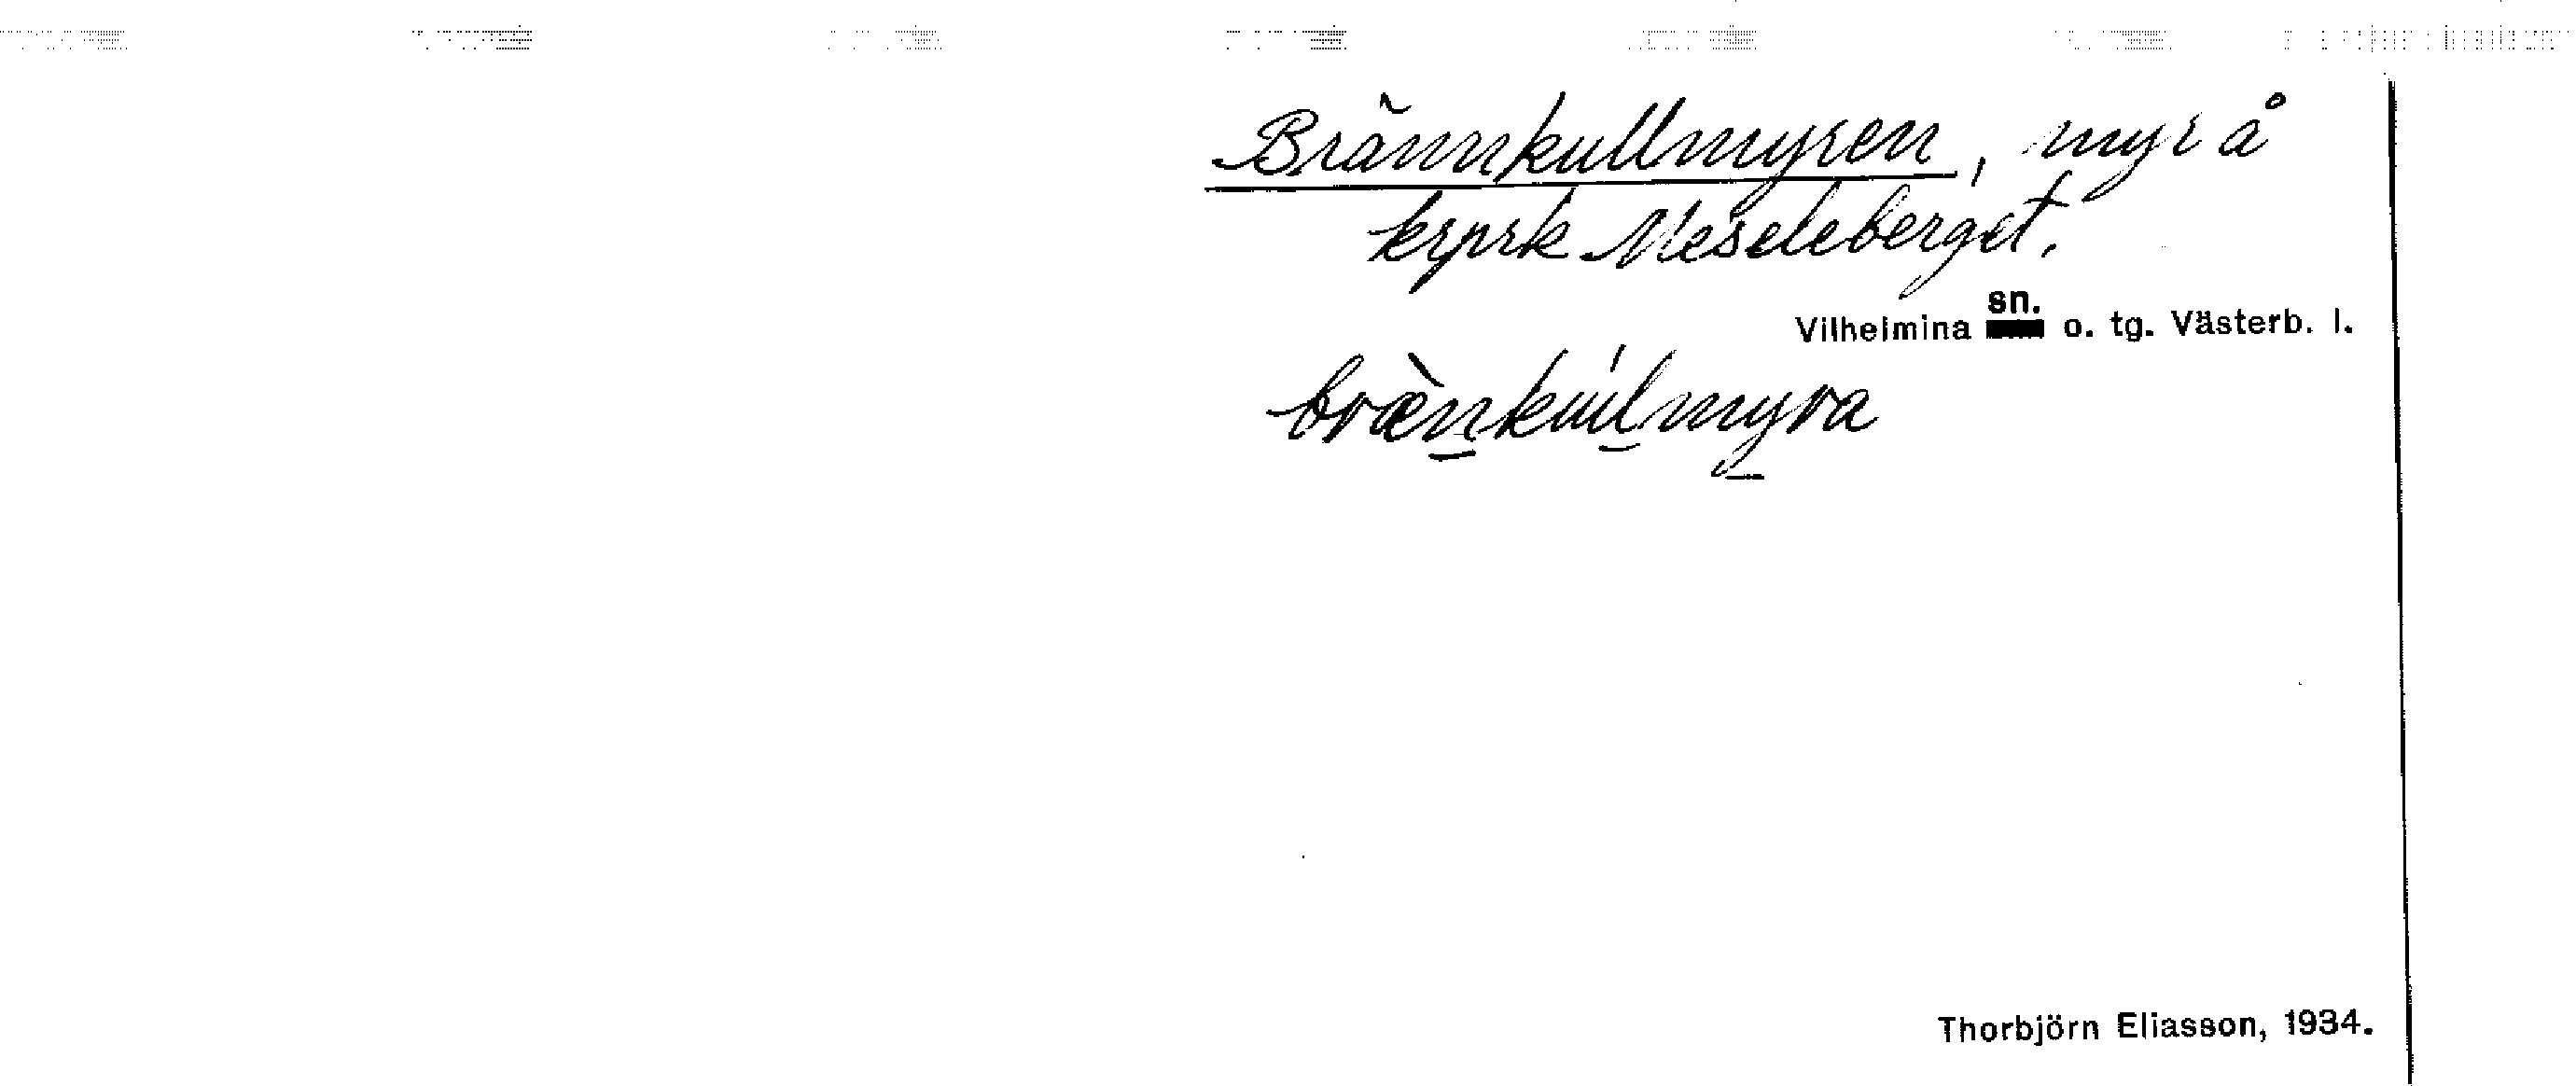 Brännkullmyren, myr å
krpsk Meseleberget.
sn.
Vilhelmina o. tg. Västerb. l.
brænkulmyra
Thorbjörn Eliasson, 1934.